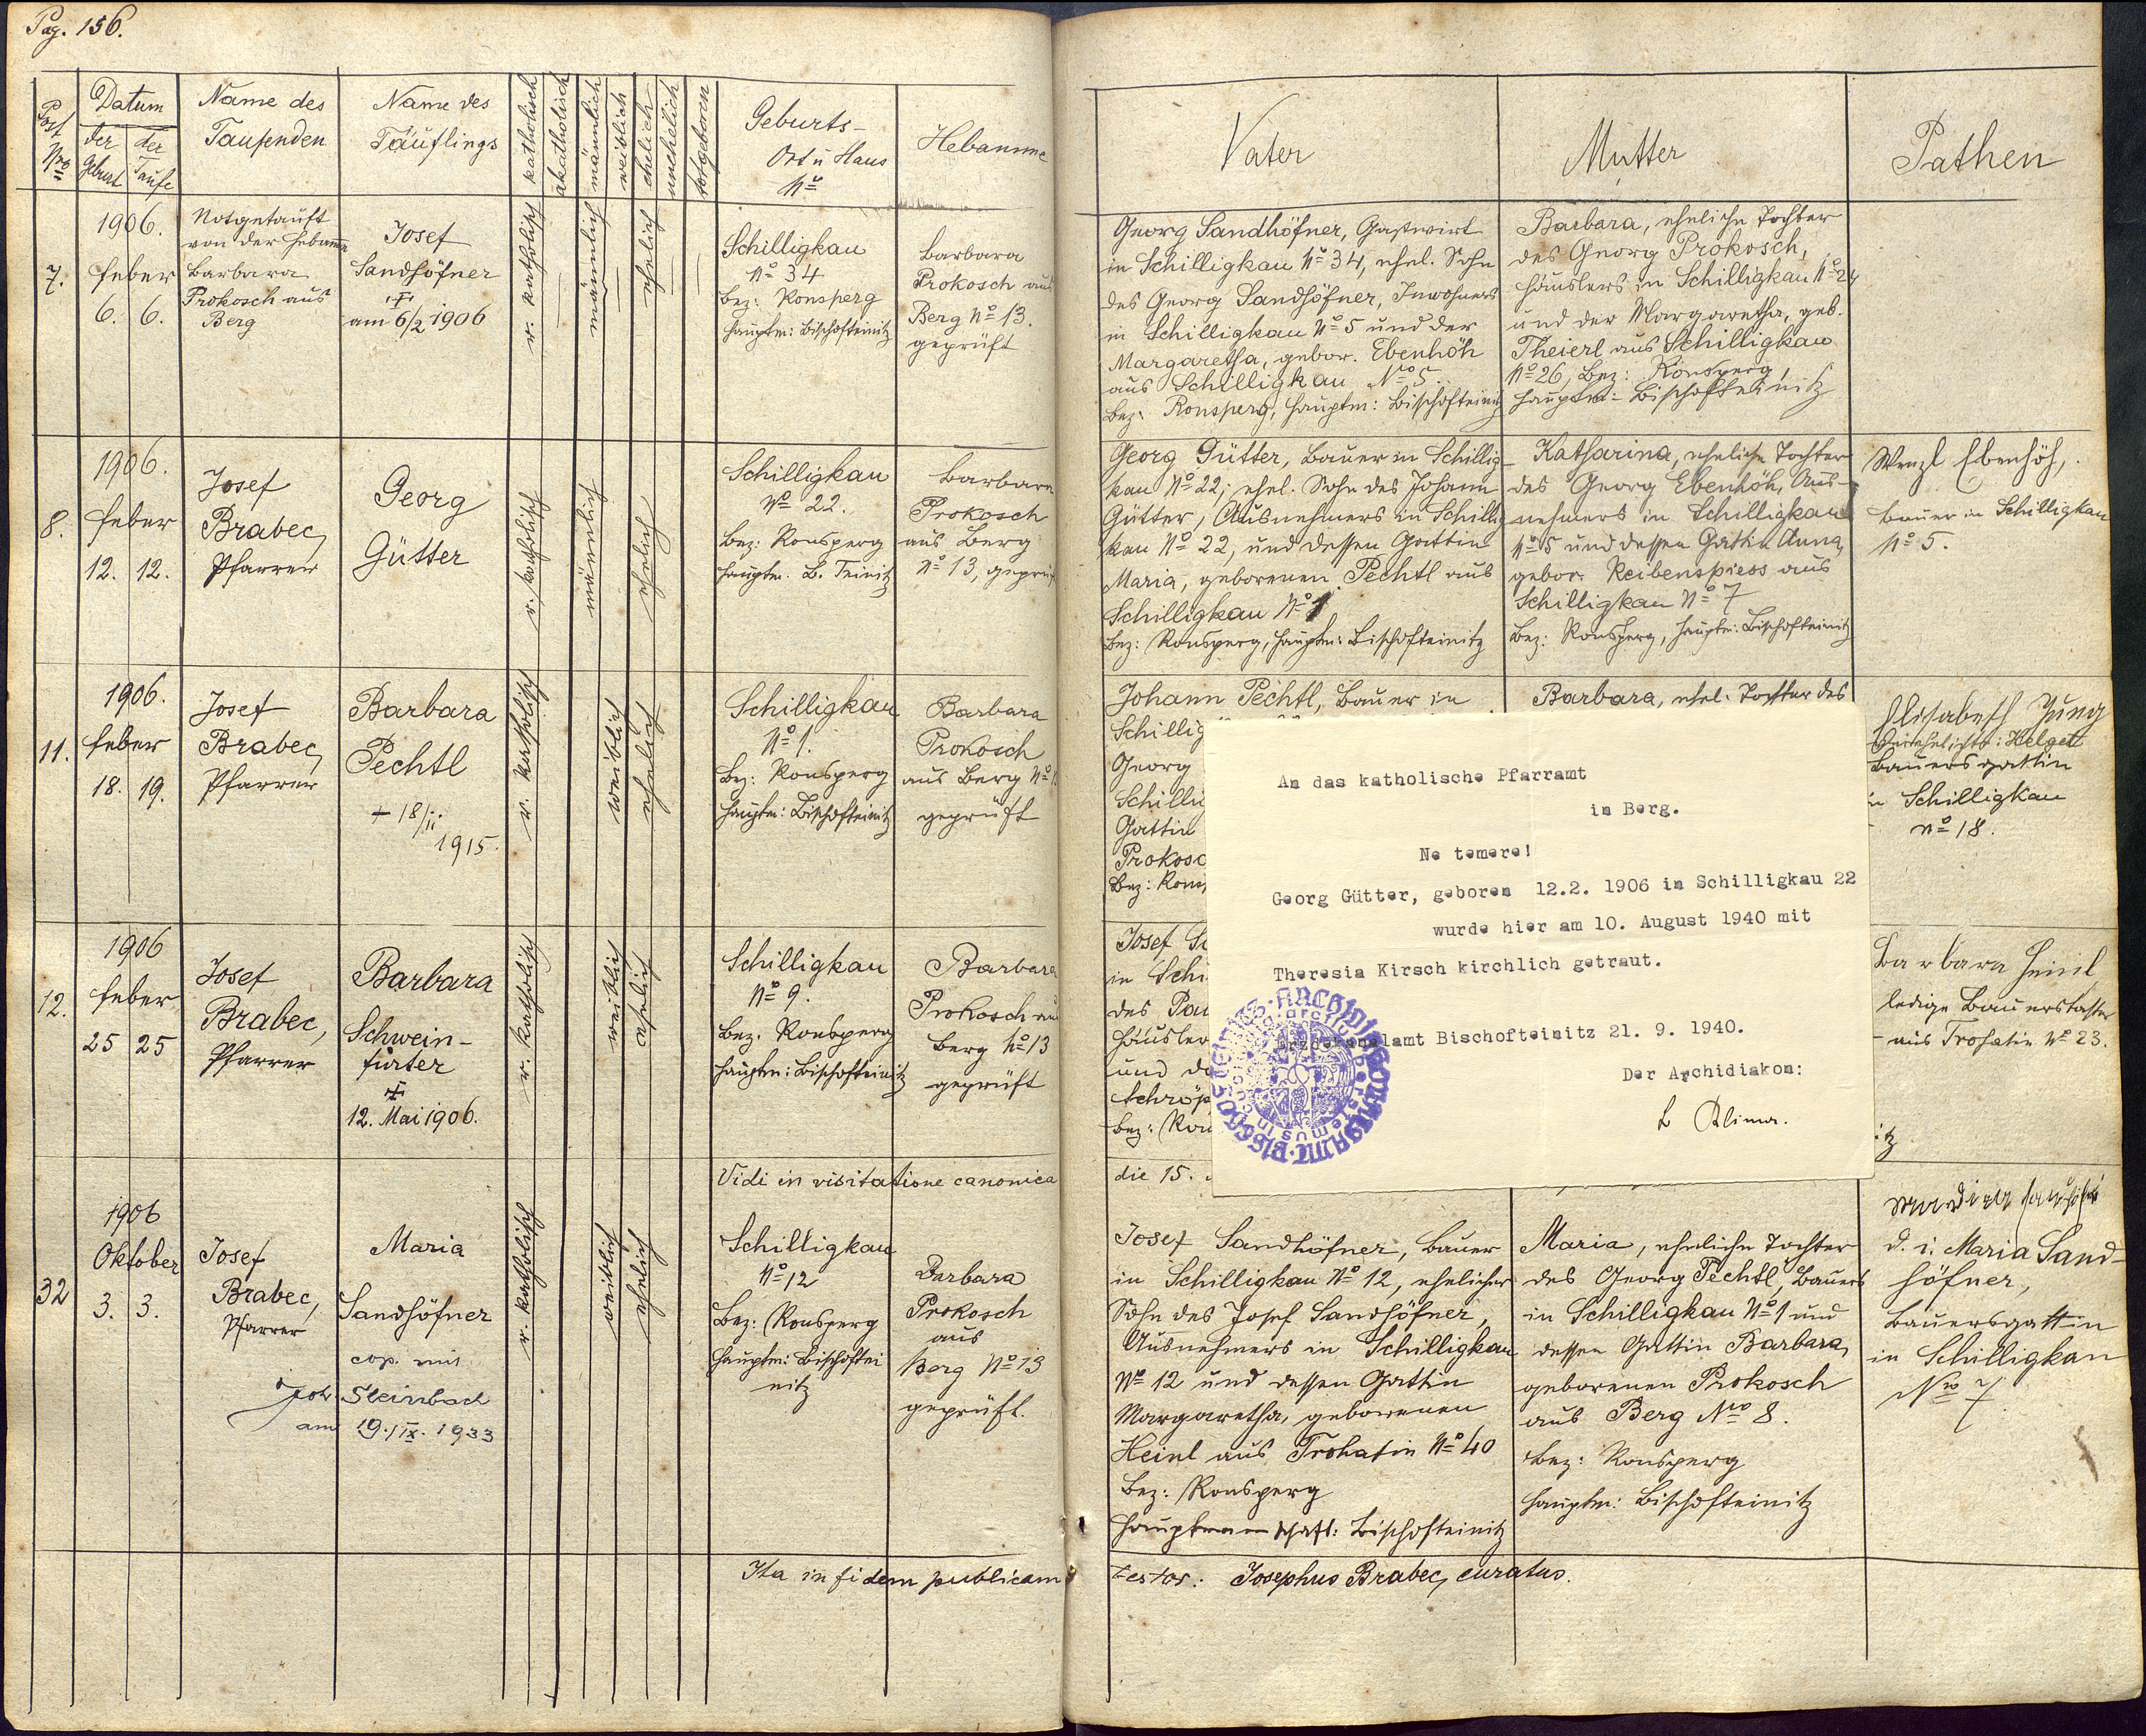 Pag. 156.
Post Nro
Datum
der Geburt
der Taufe
Name des Taufenden
Name des Täuflings
katholisch
akatholisch
männlich
weiblich
ehelich
unehelich
totgeboren
Geburts-
Ort u Haus
No
Hebamme
Vater
Mutter
Pathen
7.
1906.
Feber
6. 6.
Notgetauft
von der Hebamme
Barbara
Prokosch aus
Berg
Josef
Sandhöfner
am 6/2 1906
r. katholisch
männlich
ehelich
Schilligkau
No 34
Bez: Ronsperg
Hauptm: Bischofteinitz
Barbara
Prokosch aus
Berg No 13.
geprüft
Georg Sandhöfner, Gastwirt
in Schilligkau No 34, ehel. Sohn
des Georg Sandhöfner, Inwohners
in Schilligkau No 5 und der
Margaretha, gebor. Ebenhöh
aus Schilligkau Nro 5.
Bez: Ronsperg, Hauptm: Bischofteinitz
Barbara, eheliche Tochter
des Georg Prokosch,
Häuslers in Schilligkau No 24
und der Margaretha, geb.
Theierl aus Schilligkau
No 26, Bez: Ronsperg,
Hauptm: Bischofteinitz
8.
1906.
Feber
12. 12.
Josef
Brabec,
Pfarrer
Georg
Gütter
r. katholisch
männlich
ehelich
Schilligkau
No 22.
Bez: Ronsperg
Hauptm. B. Teinitz
Barbara
Prokosch
aus Berg
No 13, geprüft
Georg Gütter, Bauer in Schillig-
kau No 22, ehel. Sohn des Johann
Gütter, Ausnehmers in Schillig
kau No 22, und dessen Gattin
Maria, geborenen Pechtl aus
Schilligkau No 1
Bez: Ronsperg, Hauptm: Bischofteinitz
Katharina, eheliche Tochter
des Georg Ebenhöh, Aus-
nehmers in Schilligkau
No 5 und dessen Gattin Anna,
gebor. Reibenspiess aus
Schilligkau No 7
Bez: Ronsperg, Hauptm: Bischofteinitz
Wenzl Ebenhöh,
Bauer in Schilligkau
No 5.
11.
1906.
Feber
18. 19.
Josef
Brabec,
Pfarrer
Barbara
Pechtl
+ 18/II
1915.
r. katholisch
weiblich
ehelich
Schilligkau
No 1.
Bez: Ronsperg
Hauptm: Bischofteinitz
Barbara
Prokosch
aus Berg No
geprüft
Johann Pechtl, Bauer in
Schillig
Georg
Schillig
Gattin
Prokosc
Bez: Rons
Barbara, ehel. Tochter des
Elisabeth Jung
verehelichte: Helget
Bauersgattin
in Schilligkau
No 18.
An das katholische Pfarramt
in Berg.
Ne temere!
Georg Gütter, geboren 12.2. 1906 in Schilligkau 22
wurde hier am 10. August 1940 mit
Theresia Kirsch kirchlich getraut.
Erzdekanalamt Bischofteinitz 21. 9. 1940.
Der Archidiakon:
12.
1906
Feber
25 25
Josef
Brabec,
Pfarrer
Barbara
Schwein-
fürter
12. Mai 1906.
r. katholisch
weiblich
ehelich
Schilligkau
No 9.
Bez. Ronsperg
Hauptm: Bischofteinitz
Barbara
Prokosch aus
Berg No 13
geprüft
Josef Sc
in Schi
des Pau
Häusler
und de
Schröp
Bez: Ron
Barbara Heinl
ledige Bauerstochter
aus Trohatin No 23.
itz
Vidi in visitatione canonica
die 15.
32
1906
Oktober
3. 3.
Josef
Brabec,
Pfarrer
Maria
Sandhöfner
cop. mit
Joh. Steinbach
am 19./IX. 1933
r. katholisch
weiblich
ehelich
Schilligkau
No 12
Bez: Ronsperg
Hauptm: Bischoftei
nitz
Barbara
Prokosch
aus
Berg No 13
geprüft.
Josef Sandhöfner, Bauer
in Schilligkau No 12, ehelicher
Sohn des Josef Sandhöfner,
Ausnehmers in Schilligkau
No 12 und dessen Gattin
Margaretha, geborenen
Heinl aus Trohatin No 40
Bez: Ronsperg
Hauptmannschaft: Bischofteinitz
Maria, eheliche Tochter
des Georg Pechtl, Bauers
in Schilligkau No 1 und
dessen Gattin Barbara,
geborenen Prokosch
aus Berg Nro 8.
Bez: Ronsperg
Hauptm: Bischofteinitz
d. i. Maria Sand-
höfner,
Bauersgattin
in Schilligkau
Nro 7.
Ita in fidem publicam
testor: Josephus Brabec, curatus.